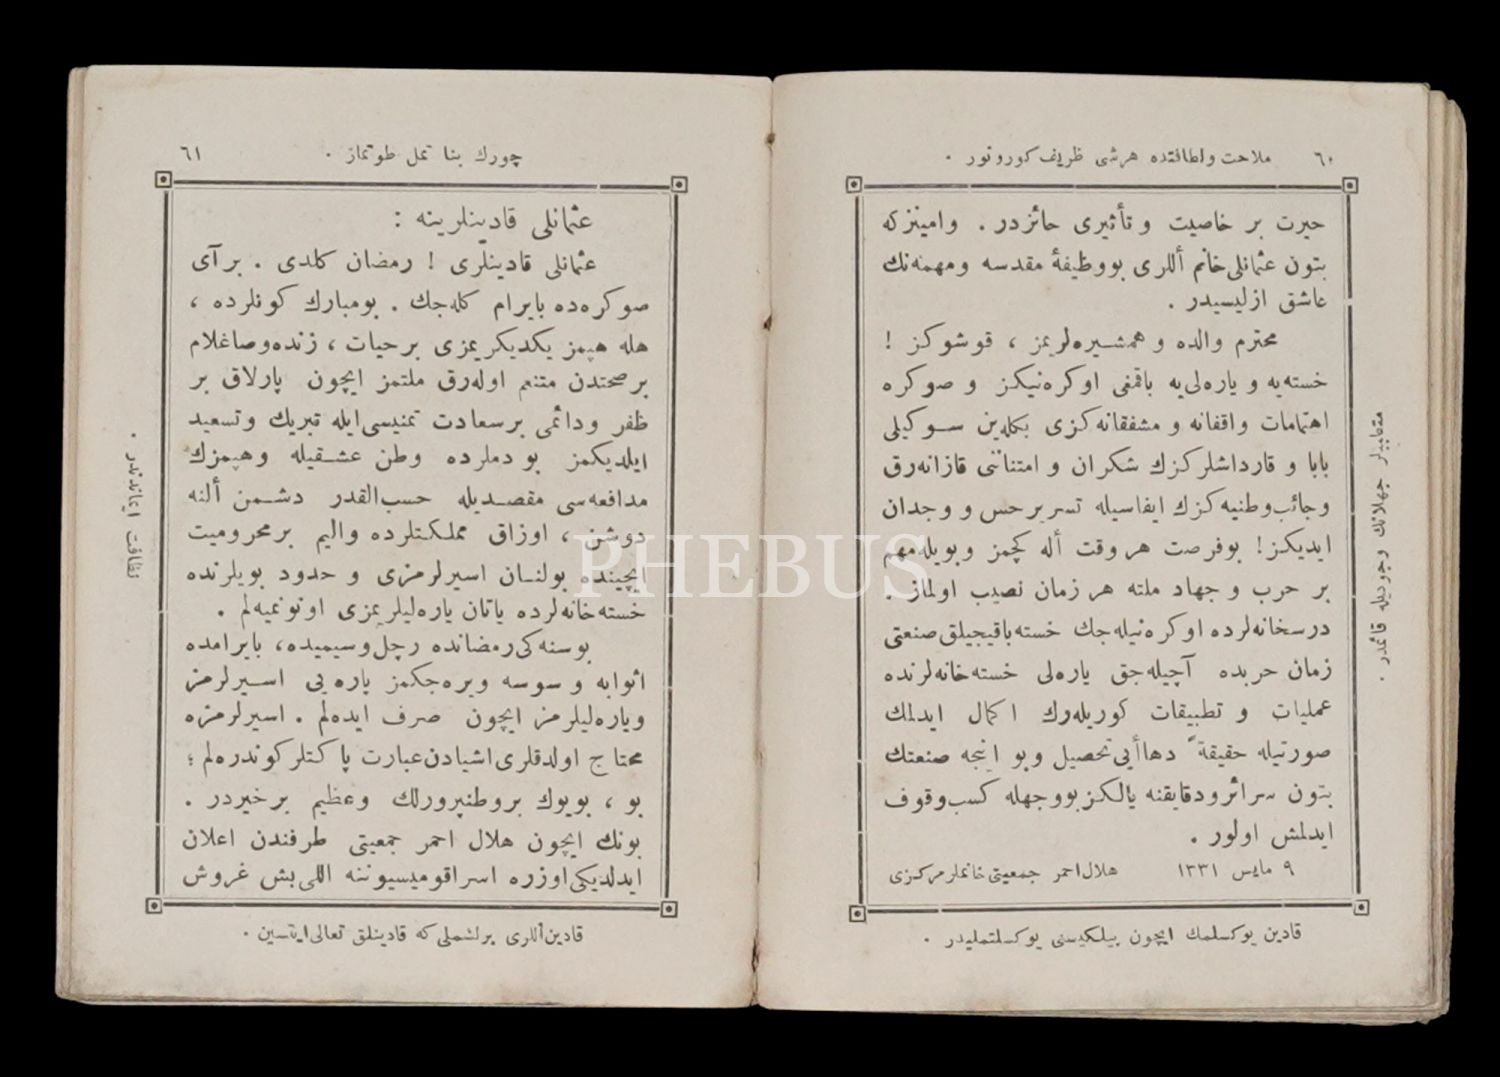 ٦٠
ملاحت ولطافتده هرشی ظریف کورونور .
حیرت بر خاصیت و تأثیری حائزدر . وامینزکه
بتون عثمانلی خانم أللری بووظیفهٔ مقدسه ومهمه‌نك
عاشق ازلیسیدر .
محترم والده و همشیره‌لریمز ، قوشوكز !
خسته‌یه و یاره‌لی‌یه باقمغی اوكره‌نیكز و صوكره
اهتمامات واقفانه و مشفقانه‌كزی بكله‌ین سوكیلی
بابا و قارداشلركزك شكران و امتناننی قازانه‌رق
وجائب‌وطنیه‌كزك ایفاسیله تسریر حس و وجدان
ایدیكز ! بوفرصت هروقت أله كچمز وبویله مهم
بر حرب و جهاد ملته هر زمان نصیب اولماز .
درسخانه‌لرده اوكره‌نیله‌جك خسته‌باقیجیلق صنعتی
زمان حربده آچیله‌جق یاره‌لی خسته‌خانه‌لرنده
عملیات و تطبیقات كوریله‌رك اكمال ایدلمك
صورتیله حقیقةً دهاأیی تحصیل وبو اینجه صنعتك
بتون سرائرودقایقنه یالكزبووجهله كسب‌وقوف
ایدلمش اولور .
٩ مایس ١٣٣١ هلال‌احمر جمعیتی‌خانملرمركزی
قادین یوكسلمك ایچون بیلكیسنی یوكسلتملیدر .
متعاییلر جهلانك وجودیله قائمدر .
٦١
چورك بنا تمل طوتماز .
عثمانلی قادینلرینه :
عثمانلی قادینلری ! رمضان كلدی . برآی
صوكره‌ده بایرام كله‌جك . بومبارك كونلرده ،
هله هپمز یكدیكریمزی برحیات ، زنده‌وصاغلام
برصحتدن متنعم اوله‌رق ملتمز ایچون پارلاق بر
ظفر ودائمی برسعادت تمنیسی‌ایله تبریك وتسعید
ایلدیكمز بودملرده وطن عشقیله وهپمزك
مدافعه‌سی مقصدیله حسب‌القدر دشمن ألنه
دوشن ، اوزاق مملكتلرده والیم برمحرومیت
ایچینده بولنان اسیرلرمزی و حدود بویلرنده
خسته‌خانه‌لرده یاتان یاره‌لیلریمزی اونوتمیه‌لم .
بوسنه‌كی‌رمضانده رچل‌وسیمیده، بایرامده
اثوابه و سوسه ویره‌جكمز پاره‌یی اسیرلرمز
ویاره‌لیلرمز ایچون صرف ایده‌لم . اسیرلرمزه
محتاج اولدقلری‌اشیادن‌عبارت پاكتلركوندره‌لم ؛
بو ، بویوك بروطنپرورلك وعظیم برخیردر .
بونك ایچون هلال احمر جمعیتی طرفندن اعلان
ایدلدیكی‌اوزره اسراقومیسیوننه اللی‌بش غروش
قادین‌أللری برلشملی‌كه قادینلق تعالی‌ایتسین .
نظافت ایماندندر .
PHEBUS